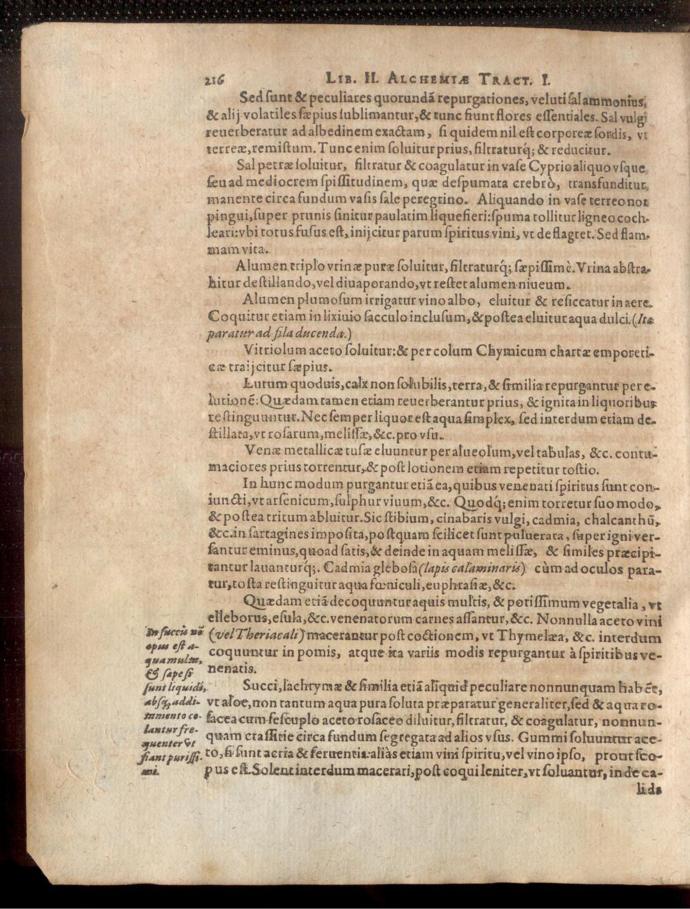 216 LIB. II. ALCHEMIÆ TRACT. I.
Sed sunt & peculiares quorundā repurgationes, veluti sal ammonius,
& alij volatiles sæpius sublimantur, & tunc fiunt flores essentiales. Sal vulgi
reuerberatur ad albedinem exactam, si quidem nil est corporeæ sordis, vt
terreæ, remistum. Tunc enim soluitur prius, filtraturq́; & reducitur.
Sal petræ soluitur, filtratur & coagulatur in vase Cyprio aliquo vsque
seu ad mediocrem spissitudinem, quæ despumata crebrò, transfunditur,
manente circa fundum vasis sale peregrino. Aliquando in vase terreo not
pingui, super prunis sinitur paulatim liquefieri: spuma tollitur ligneo coch-
leari: vbi totus fusus est, inijcitur parum spiritus vini, vt deflagret. Sed flam-
mam vita.
Alumen triplo vrinæ puræ soluitur, filtraturq́; sæpissimè. Vrina abstra-
hitur destillando, vel diuaporando, vt restet alumen niueum.
Alumen plumosum irrigatur vino albo, eluitur & resiccatur in aere.
Coquitur etiam in lixiuio sacculo inclusum, & postea eluitur aqua dulci. (Ita
paratur ad fila ducenda.)
Vitriolum aceto soluitur: & per colum Chymicum chartæ emporeti-
cæ traijcitur sæpius.
Lutum quoduis, calx non solubilis, terra, & similia repurgantur per e-
lutionē: Quædam tamen etiam reuerberantur prius, & ignita in liquoribus
restinguuntur. Nec semper liquor est aqua simplex, sed interdum etiam de-
stillata, vt rosarum, melissæ, &c. pro vsu.
Venæ metallicæ tusæ eluuntur per alueolum, vel tabulas, &c. contu-
maciores prius torrentur, & post lotionem etiam repetitur tostio.
In hunc modum purgantur etiā ea, quibus venenati spiritus sunt con-
iuncti, vt arsenicum, sulphur viuum, &c. Quodq́; enim torretur suo modo,
& postea tritum abluitur. Sic stibium, cinabaris vulgi, cadmia, chalcanthū,
&c. in sartagines imposita, postquam scilicet sunt puluerata, super igni ver-
santur eminus, quoad satis, & deinde in aquam melissæ, & similes præcipi-
tantur lauanturq́;. Cadmia glebosa (lapis calaminaris) cùm ad oculos para-
tur, tosta restinguitur aqua fœniculi, euphrasiæ, &c.
Quædam etiā decoquuntur aquis multis, & potissimum vegetalia, vt
elleborus, esula, &c. venenatorum carnes assantur, &c. Nonnulla aceto vini
(vel Theriacali) macerantur post coctionem, vt Thymelæa, &c. interdum
coquuntur in pomis, atque ita variis modis repurgantur à spiritibus ve-
nenatis.
Succi, lachrymæ & similia etiā aliquid peculiare nonnunquam habēt,
vt aloe, non tantum aqua pura soluta præparatur generaliter, sed & aqua ro-
sacea cum sescuplo aceto rosaceo diluitur, filtratur, & coagulatur, nonnun-
quam crassitie circa fundum segregata ad alios vsus. Gummi soluuntur ace-
to, si sunt acria & feruentia: aliàs etiam vini spiritu, vel vino ipso, prout sco-
pus est. Solent interdum macerari, post coqui leniter, vt soluantur, inde ca-
lida
In succis nō
opus est a-
qua multa,
& sæpe si
sunt liquidi,
absq́; addi-
tamento co-
lantur fre-
quenter vt
fiant purissi-
mi.